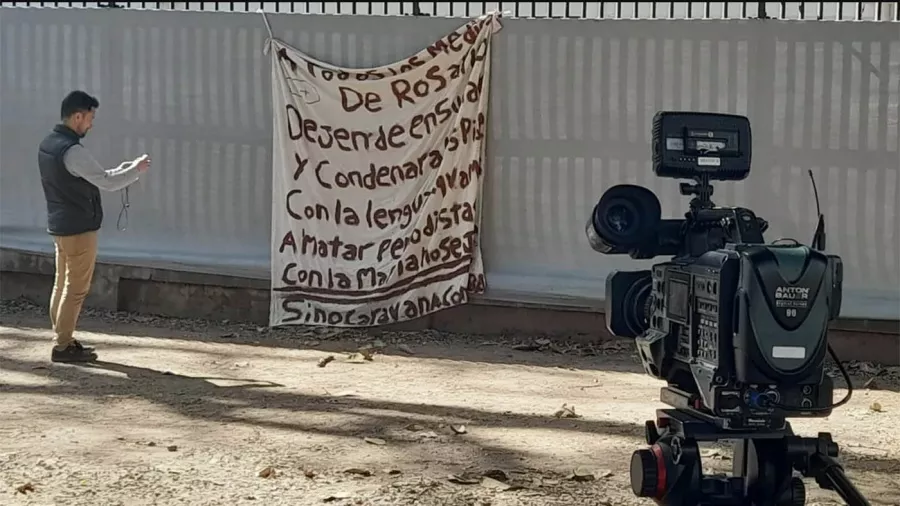 A Todos los Medios
De Rosario
Dejen de ensuciar
Y Condenar a
Con la lengua
A Matar Periodistas
Con la Mafia no Se J
Sino caravana con
ANTON
BAUER